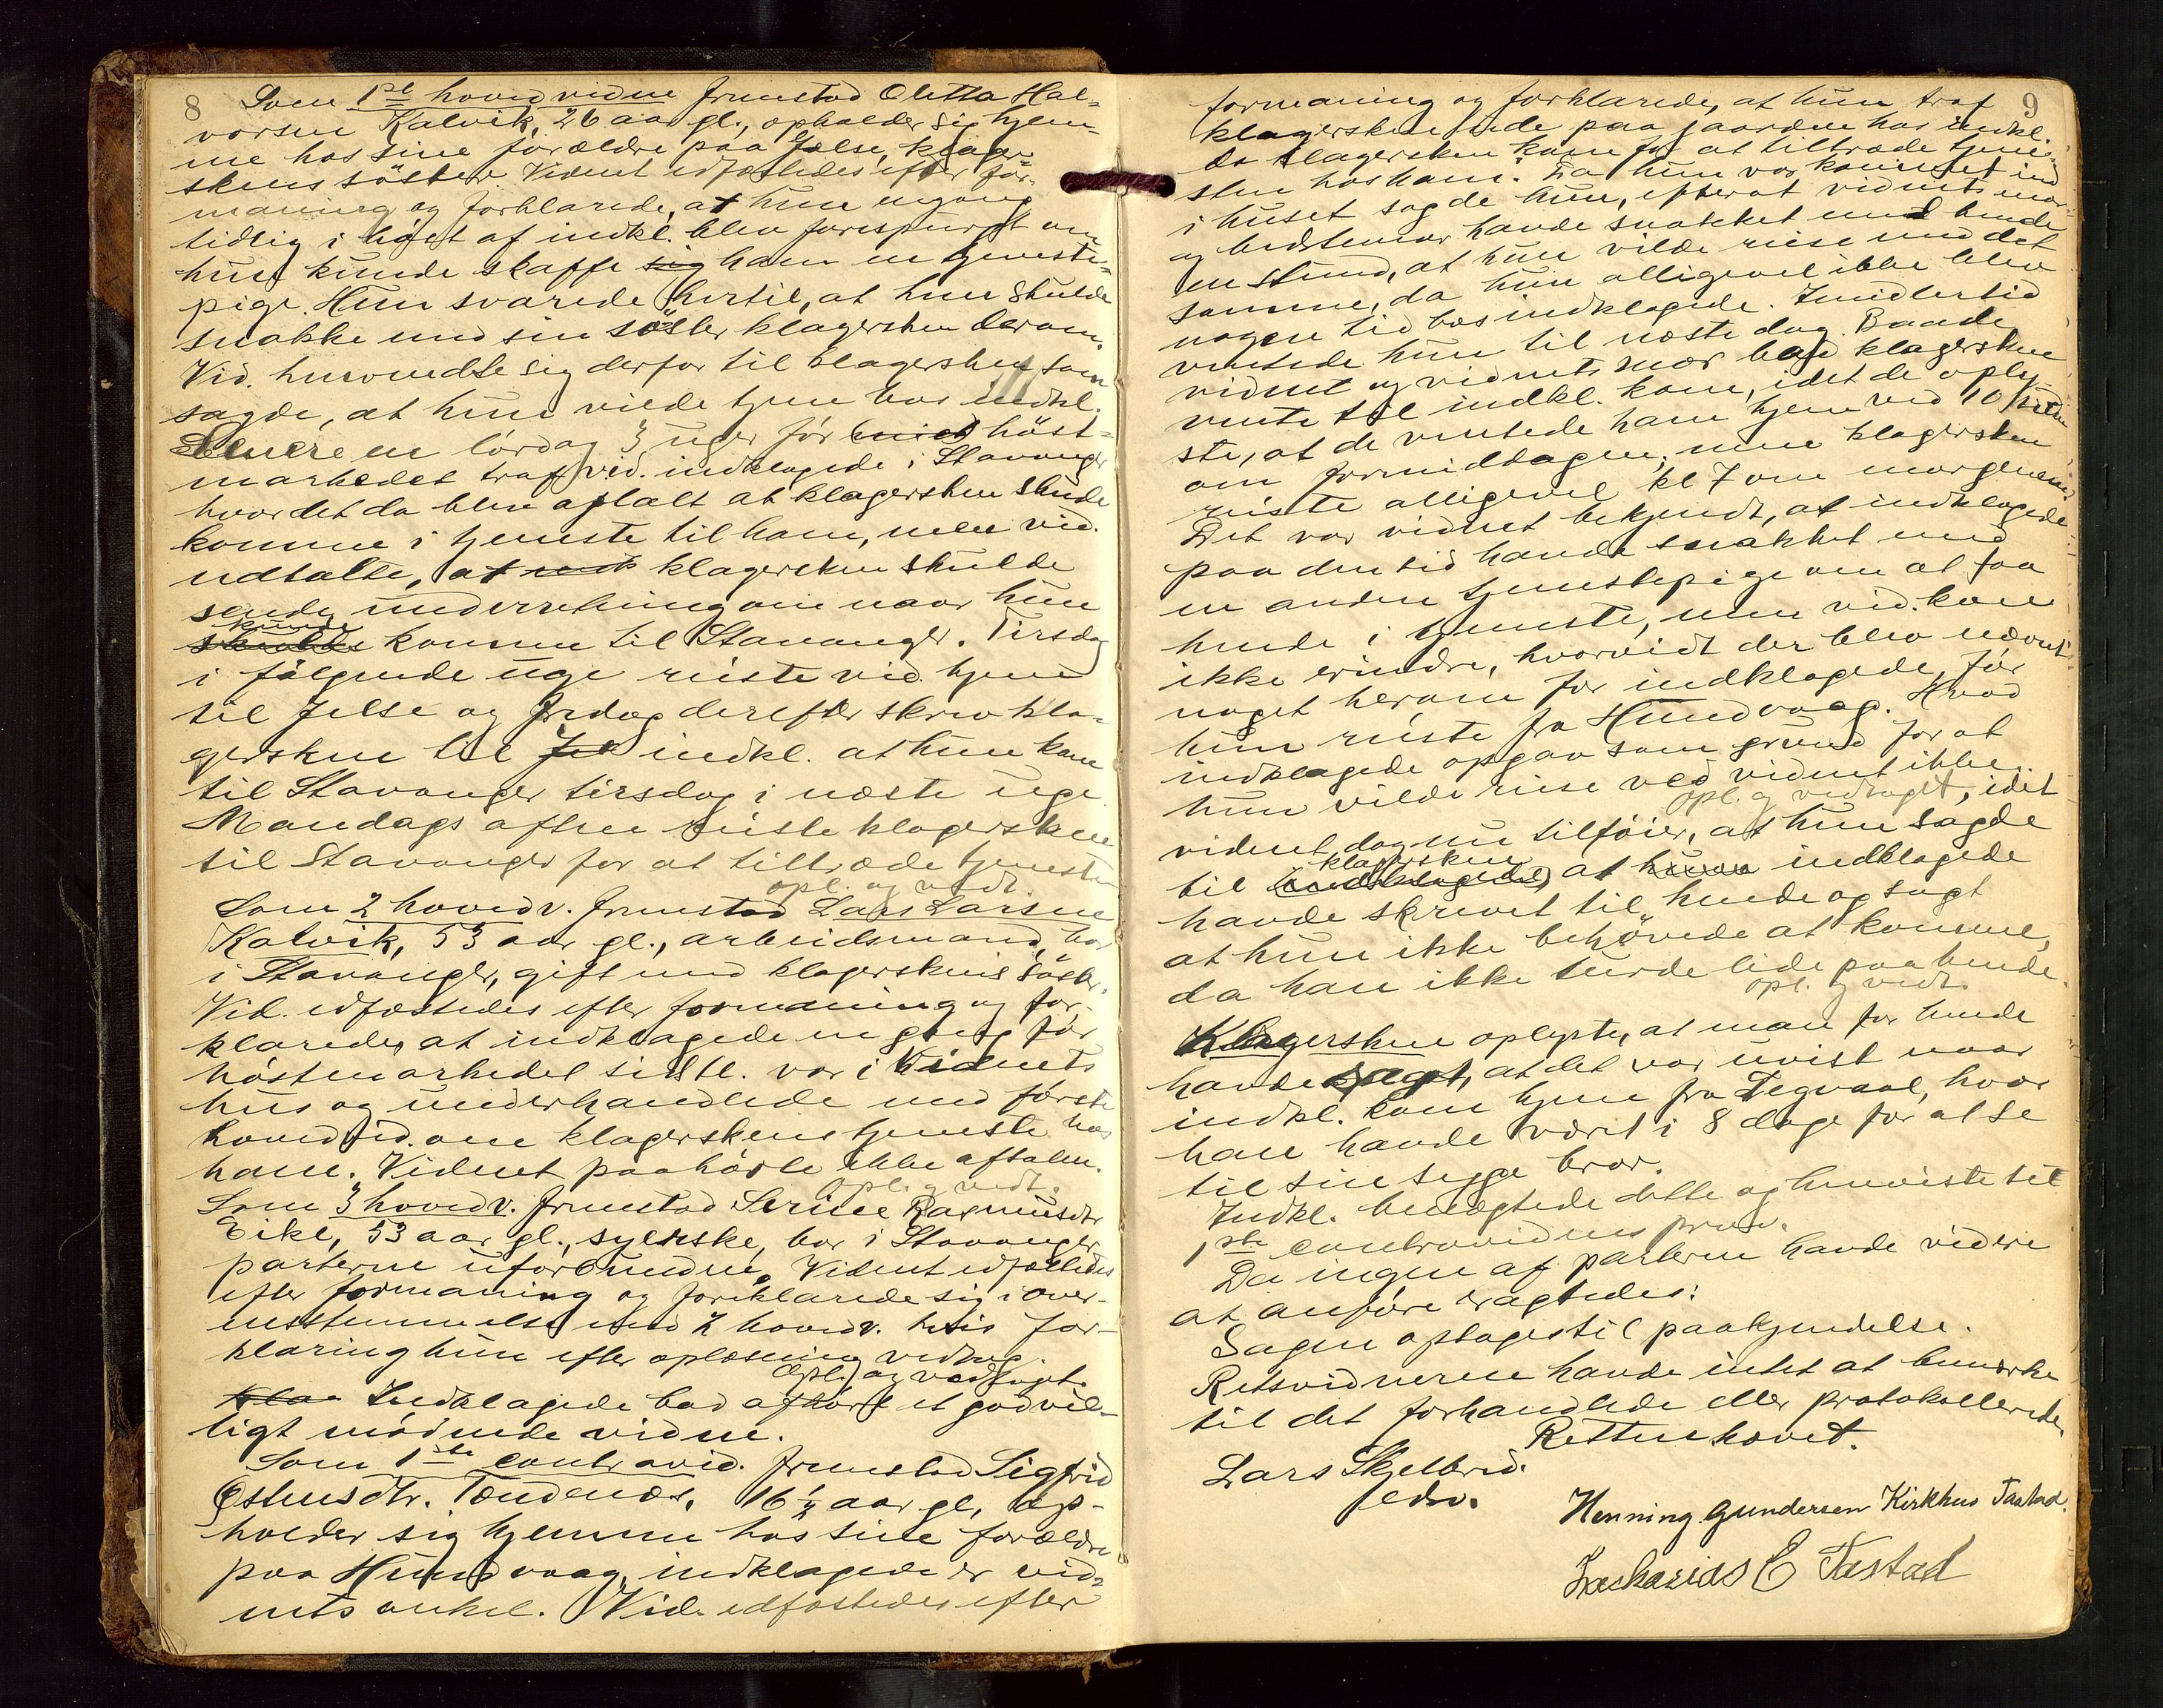 8
Som 1ste hovedvidne fremstod Oletta Hal-
vorsen Kalvik, 26 aar gl., opholder sig hjem-
me hos sine forældre paa Jelse, klager-
skens söster. Vidnet edfæstedes efter for-
maning og forklarede, at hun engang
tidlig i høst af indkl. blev forespurgt om
hun kunde skaffe sig ham en tjeneste-
pige. Hun svarede hertil, at hun skulde
snakke med sin söster klagersken derom.
Vid. henvendte sig derfor til klagersken som
sagde, at hun vilde tjene hos indkl.
Senere en lørdag 3 uger før høst-
markedet traf vid. indklagede i Stavanger
hvor det da blev aftalt at klagersken skulde
komme i tjeneste til ham, men vid.
udtalte, at klagersken skulde
sende underretning om naar hun
kunde
skulde komme til Stavanger. Tirsdag
i følgende uge reiste vid. hjem
til Jelse og fredag derefter skrev kla-
gersken til Jel indkl. at hun kom
til Stavanger tirsdag i næste uge.
Mandags aften reiste klagersken
til Stavanger for at tiltræde tjenesten
opl. og vedt.
Som 2 hovedv. fremstod Lars Larsen
Kalvik, 53 aar gl., arbeidsmand, bor
i Stavanger, gift med klagerskens söster.
Vid. edfæstedes efter formaning og for-
klarede, at indklagede en gang før
høstmarkedet sidstl. var i Vidnets
hus og underhandlede med første
hovedvid. om klagerskens tjeneste hos
ham. Vidnet paahørte ikke aftalen.
Opl. og vedt.
Som 3 hovedv. fremstod Serine Rasmusdtr
Eike, 53 aar gl., syerske, bor i Stavanger
parterne uforbunden. Vidnet edfæstedes
efter formaning og forklarede sig i over-
ensstemmelse med 2 hovedv. hvis for-
klaring hun efter oplæsning vedtog.
Opl. og vedtaget.
Kla Indklagede bad afhørt et godvil-
ligt mødende vidne.
Som 1ste contravid. fremstod Sigfrid
Østensdtr. Tendenes, 16½ aar gl., op-
holder sig hjemme hos sine forældre
paa Hundvaag, indklagede er vid-
nets onkel. Vid. edfæstedes efter
9
formaning og forklarede, at hun traf
klagersken nede paa gaarden hos indkl.
da klagersken kom for at tiltræde tjene-
sten hos ham. Da hun var kommet ind
i huset sagde hun, efterat vidnets mor
og bedstemor havde snakket med hende
en stund, at hun vilde reise med det
samme, da hun alligevel ikke blev
nogen tid hos indklagede. Imidlertid
ventede hun til næste dag. Baade
vidnet og vidnets mor bad klagersken
vente til indkl. kom, idet de oply-
ste, at de ventede ham hjem ved 10 tiden
om formiddagen, men klagersken
reiste alligevel kl 7 om morgenen.
Det var vidnet bekjendt, at indklagede
paa den tid havde snakket med
en anden tjenestepige om at faa
hende i tjeneste, men vid. kan
ikke erindre, hvorvidt der blev nævnt
noget herom for indklagede, før
hun reiste fra Hundvaag. Hvad
indklagede opgav som grund for at
hun vilde reise ved vidnet ikke.
opl. og vedtaget, idet
vidnet dog nu tilføier, at hun sagde
klagersken
til indklagede, at hun indklagede
havde skrevet til hende og sagt
at hun ikke behøvede at komme,
da han ikke turde lide paa hende.
opl. og vedt.
Klagersken oplyste, at man for hende
havde sagt, at det var uvist naar
indkl. kom hjem fra Tegvaal, hvor
han havde været i 8 dage for at se
til sin syge bror.
Indkl. benægtede dette og henviste til
1ste contravidnes prov.
Da ingen af parterne havde videre
at anføre eragtedes:
Sagen optages til paakjendelse.
Retsvidnerne havde intet at bemærke
til det forhandlede eller protokollerede
Retten hævet.
Lars Skjelbrid.
edsv.
Henning Gundersen Kirkhus Tastad.
Zackarias E Tastad